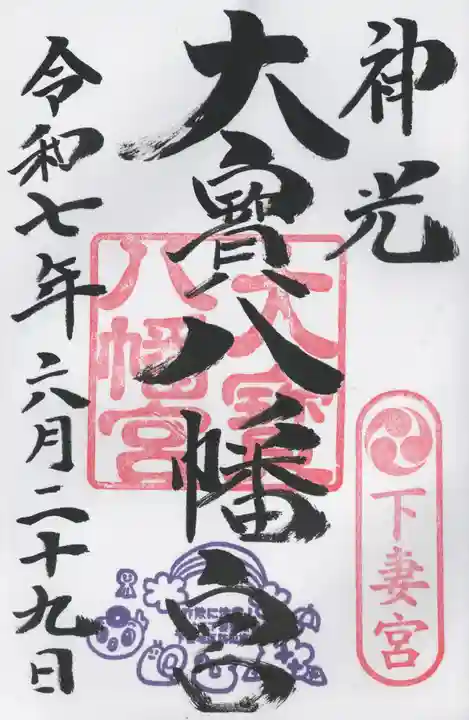 神光
大寳八幡宮
大寳
八幡宮
下妻宮
令和七年六月二十九日